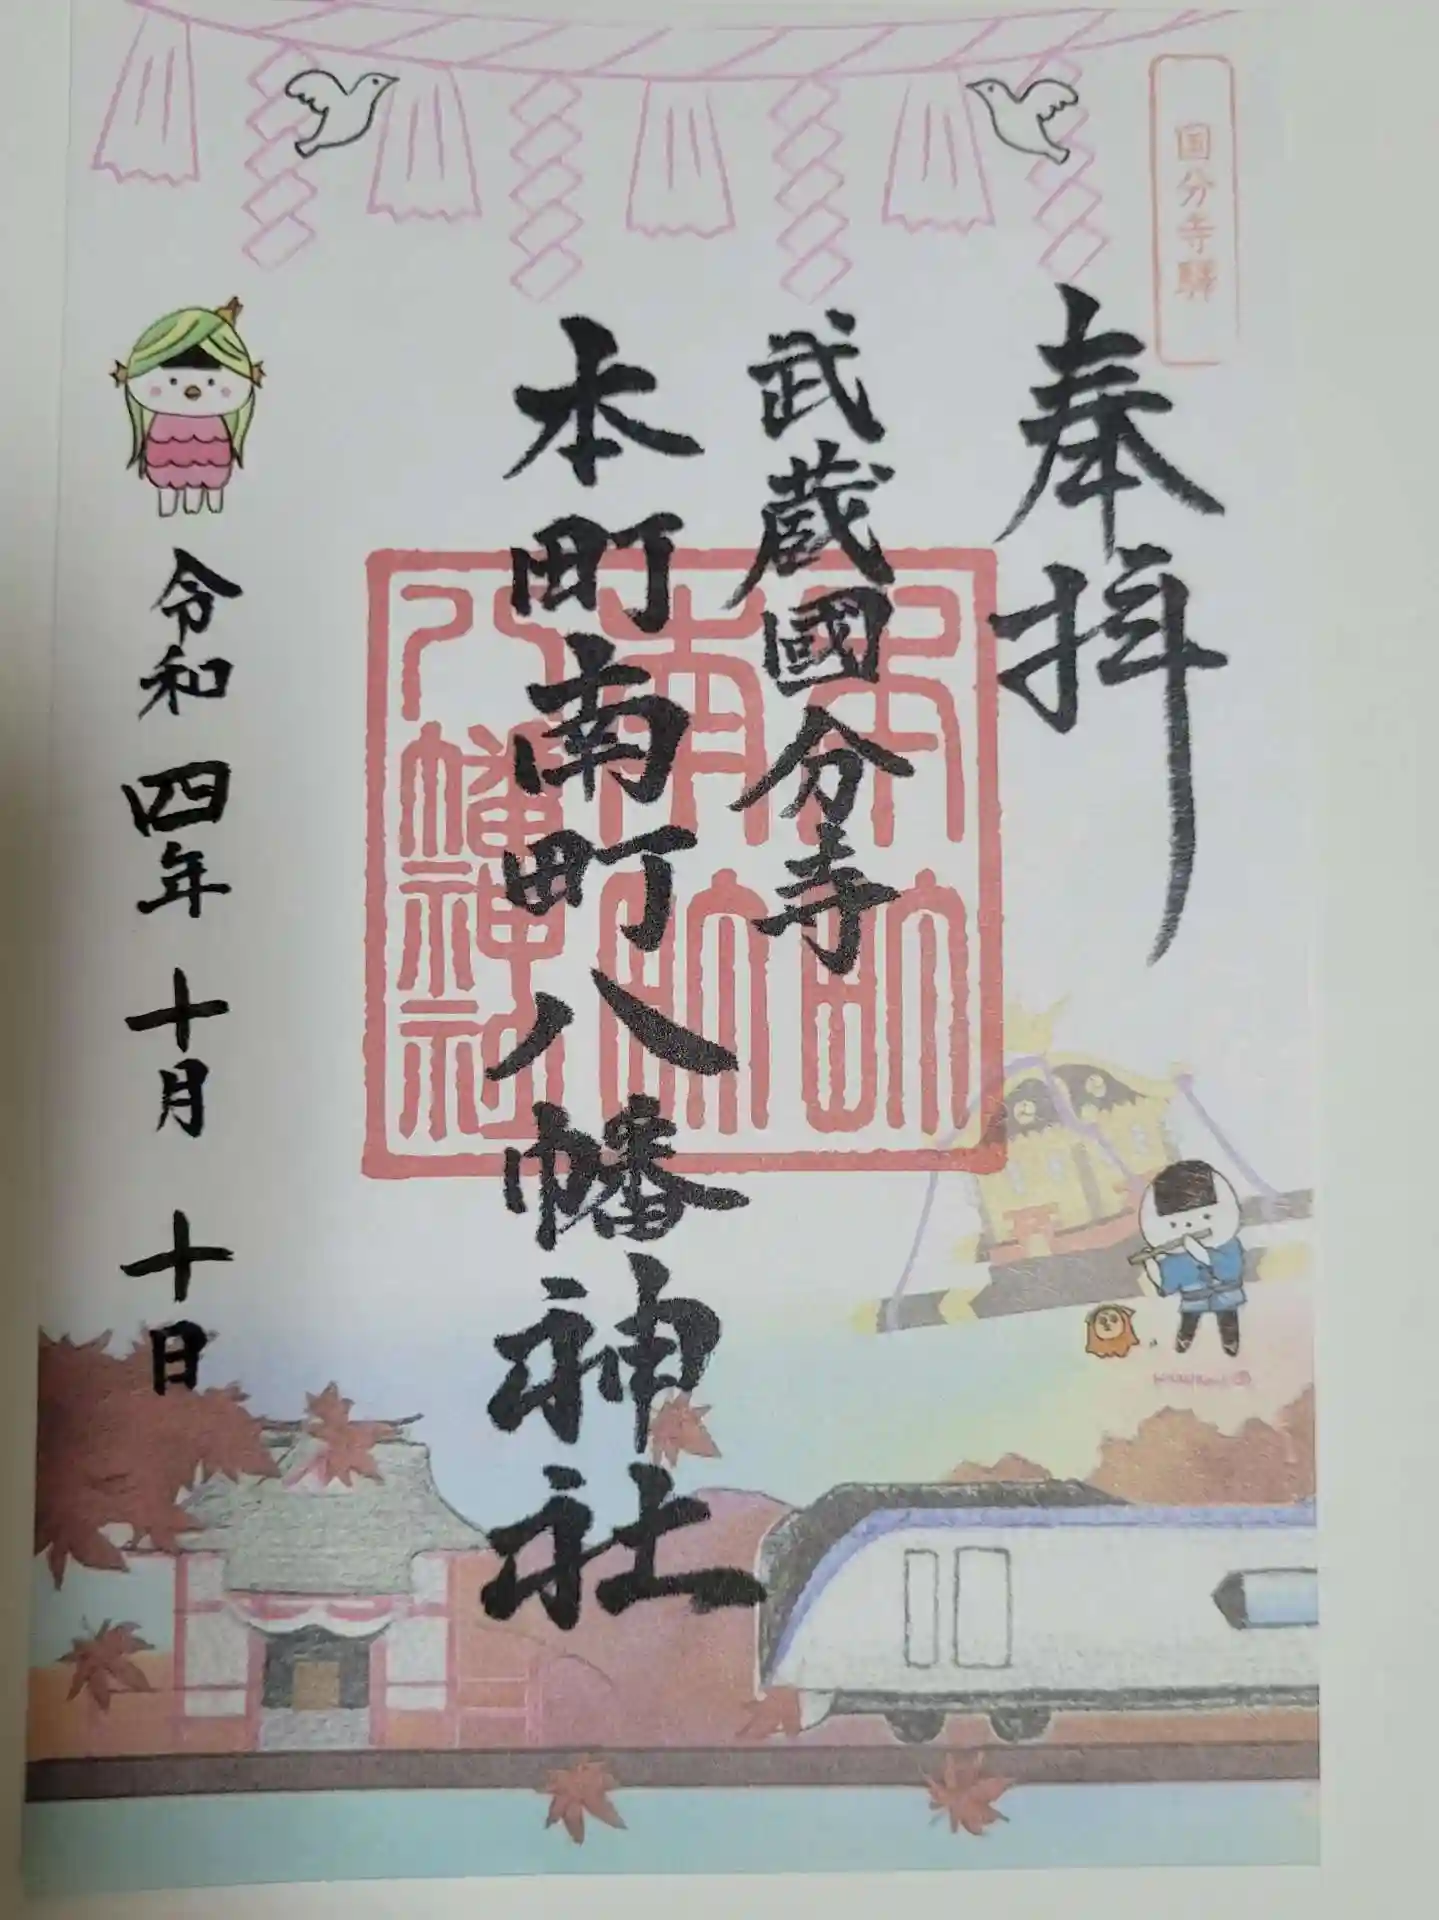 国分寺驛
奉拝
武蔵國分寺
本町南町八幡神社
本町
南町
八幡神社
令和四年十月十日